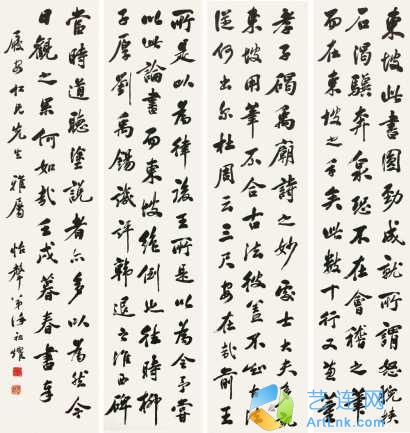 東坡此書圓勁成就所謂怒猊抉
石渴驥奔泉恐不在會稽之筆
而在東坡之手矣此數十行又兼董
孝子碣禹廟詩之妙處士大夫多譏
東坡用筆不合古法彼蓋不知古法
從何出尔杜周云三尺安在哉前王
所是以為律後王所是以為令予嘗
以此論書而東坡絕倒也往時柳
子厚劉禹錫譏評韓退之淮西碑
當時道聽塗說者亦多以為然今
日觀之果何如哉壬戌暮春書奉
先生雅屬 怡聲弟
艺连网
ArtLnk.com